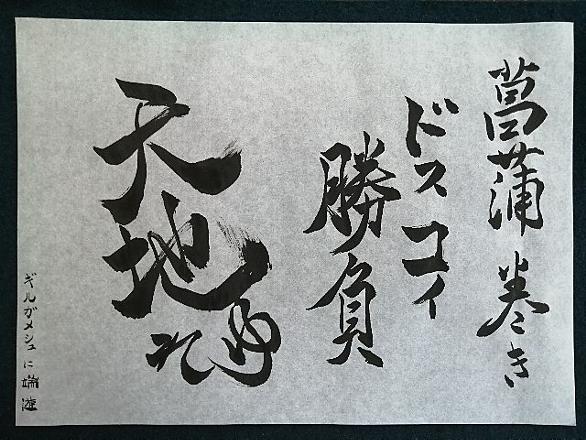 菖蒲巻き
ドスコイ
勝負
天地
れ
ギルガメシュに端遊